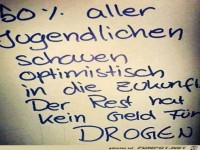 50% aller
Jugendlichen
schauen
optimistisch
in die Zukunft.
Der Rest hat
kein Geld für
DROGEN